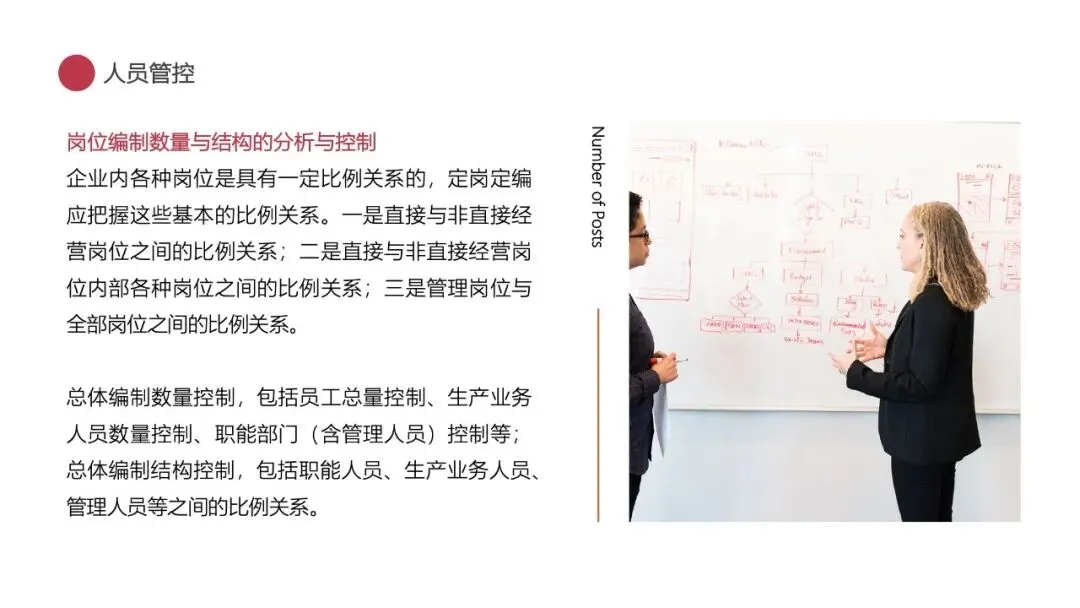 人员管控
岗位编制数量与结构的分析与控制
企业内各种岗位是具有一定比例关系的，定岗定编
应把握这些基本的比例关系。一是直接与非直接经
营岗位之间的比例关系；二是直接与非直接经营岗
位内部各种岗位之间的比例关系；三是管理岗位与
全部岗位之间的比例关系。
总体编制数量控制，包括员工总量控制、生产业务
人员数量控制、职能部门（含管理人员）控制等；
总体编制结构控制，包括职能人员、生产业务人员、
管理人员等之间的比例关系。
Number of Posts
Budget